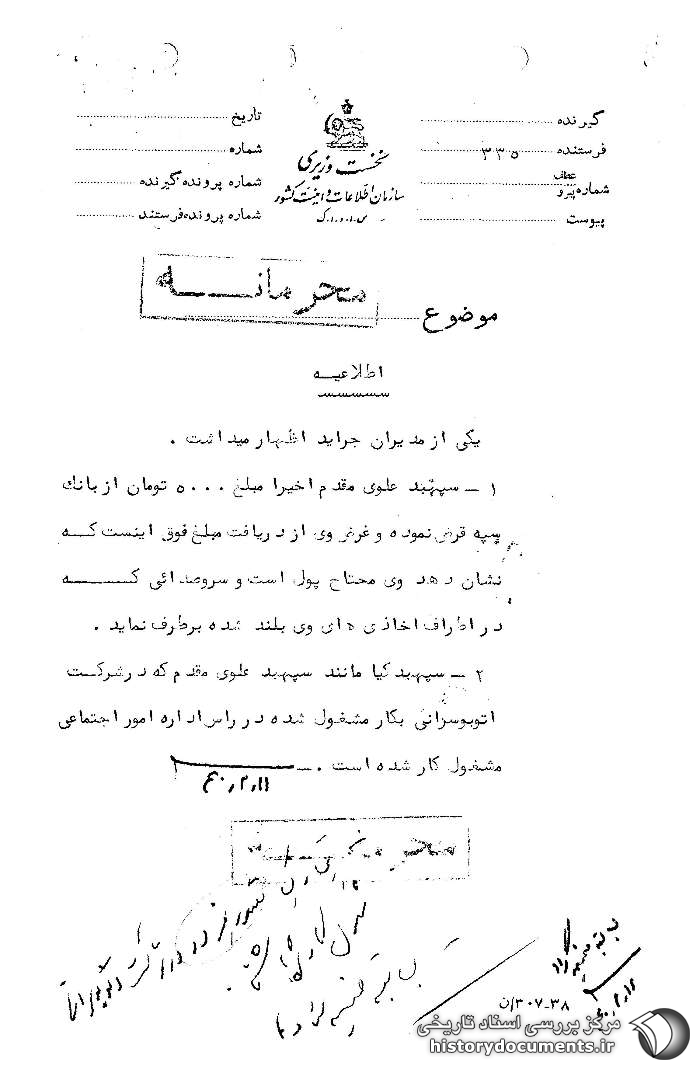 گیرنده
فرستنده ۳۳۵
عطف
شماره پیرو
پیوست
نخست وزیری
سازمان اطلاعات و امنیت کشور
س.ا.و.ا.ک
تاریخ
شماره
شماره پرونده گیرنده
شماره پرونده فرستند
محرمانه
موضوع
اطلاعیه
یکی از مدیران جراید اظهار میداشت .
۱ – سپهبد علوی مقدم اخیرا مبلغ ۵۰۰۰ تومان از بانک
سپه قرض نموده و غرض وی از دریافت مبلغ فوق اینست که
نشان دهد وی محتاج پول است و سروصدائی که
در اطراف اخاذی های وی بلند شده برطرف نماید .
۲ – سپهبد کیا مانند سپهبد علوی مقدم که در شرکت
اتوبوسرانی بکار مشغول شده در راس اداره امور اجتماعی
مشغول کار شده است . –
۴۰٫۲٫۱۱
محرمانه
۳۰۷-۳۸/ن
مرکز بررسی اسناد تاریخی
historydocuments.ir